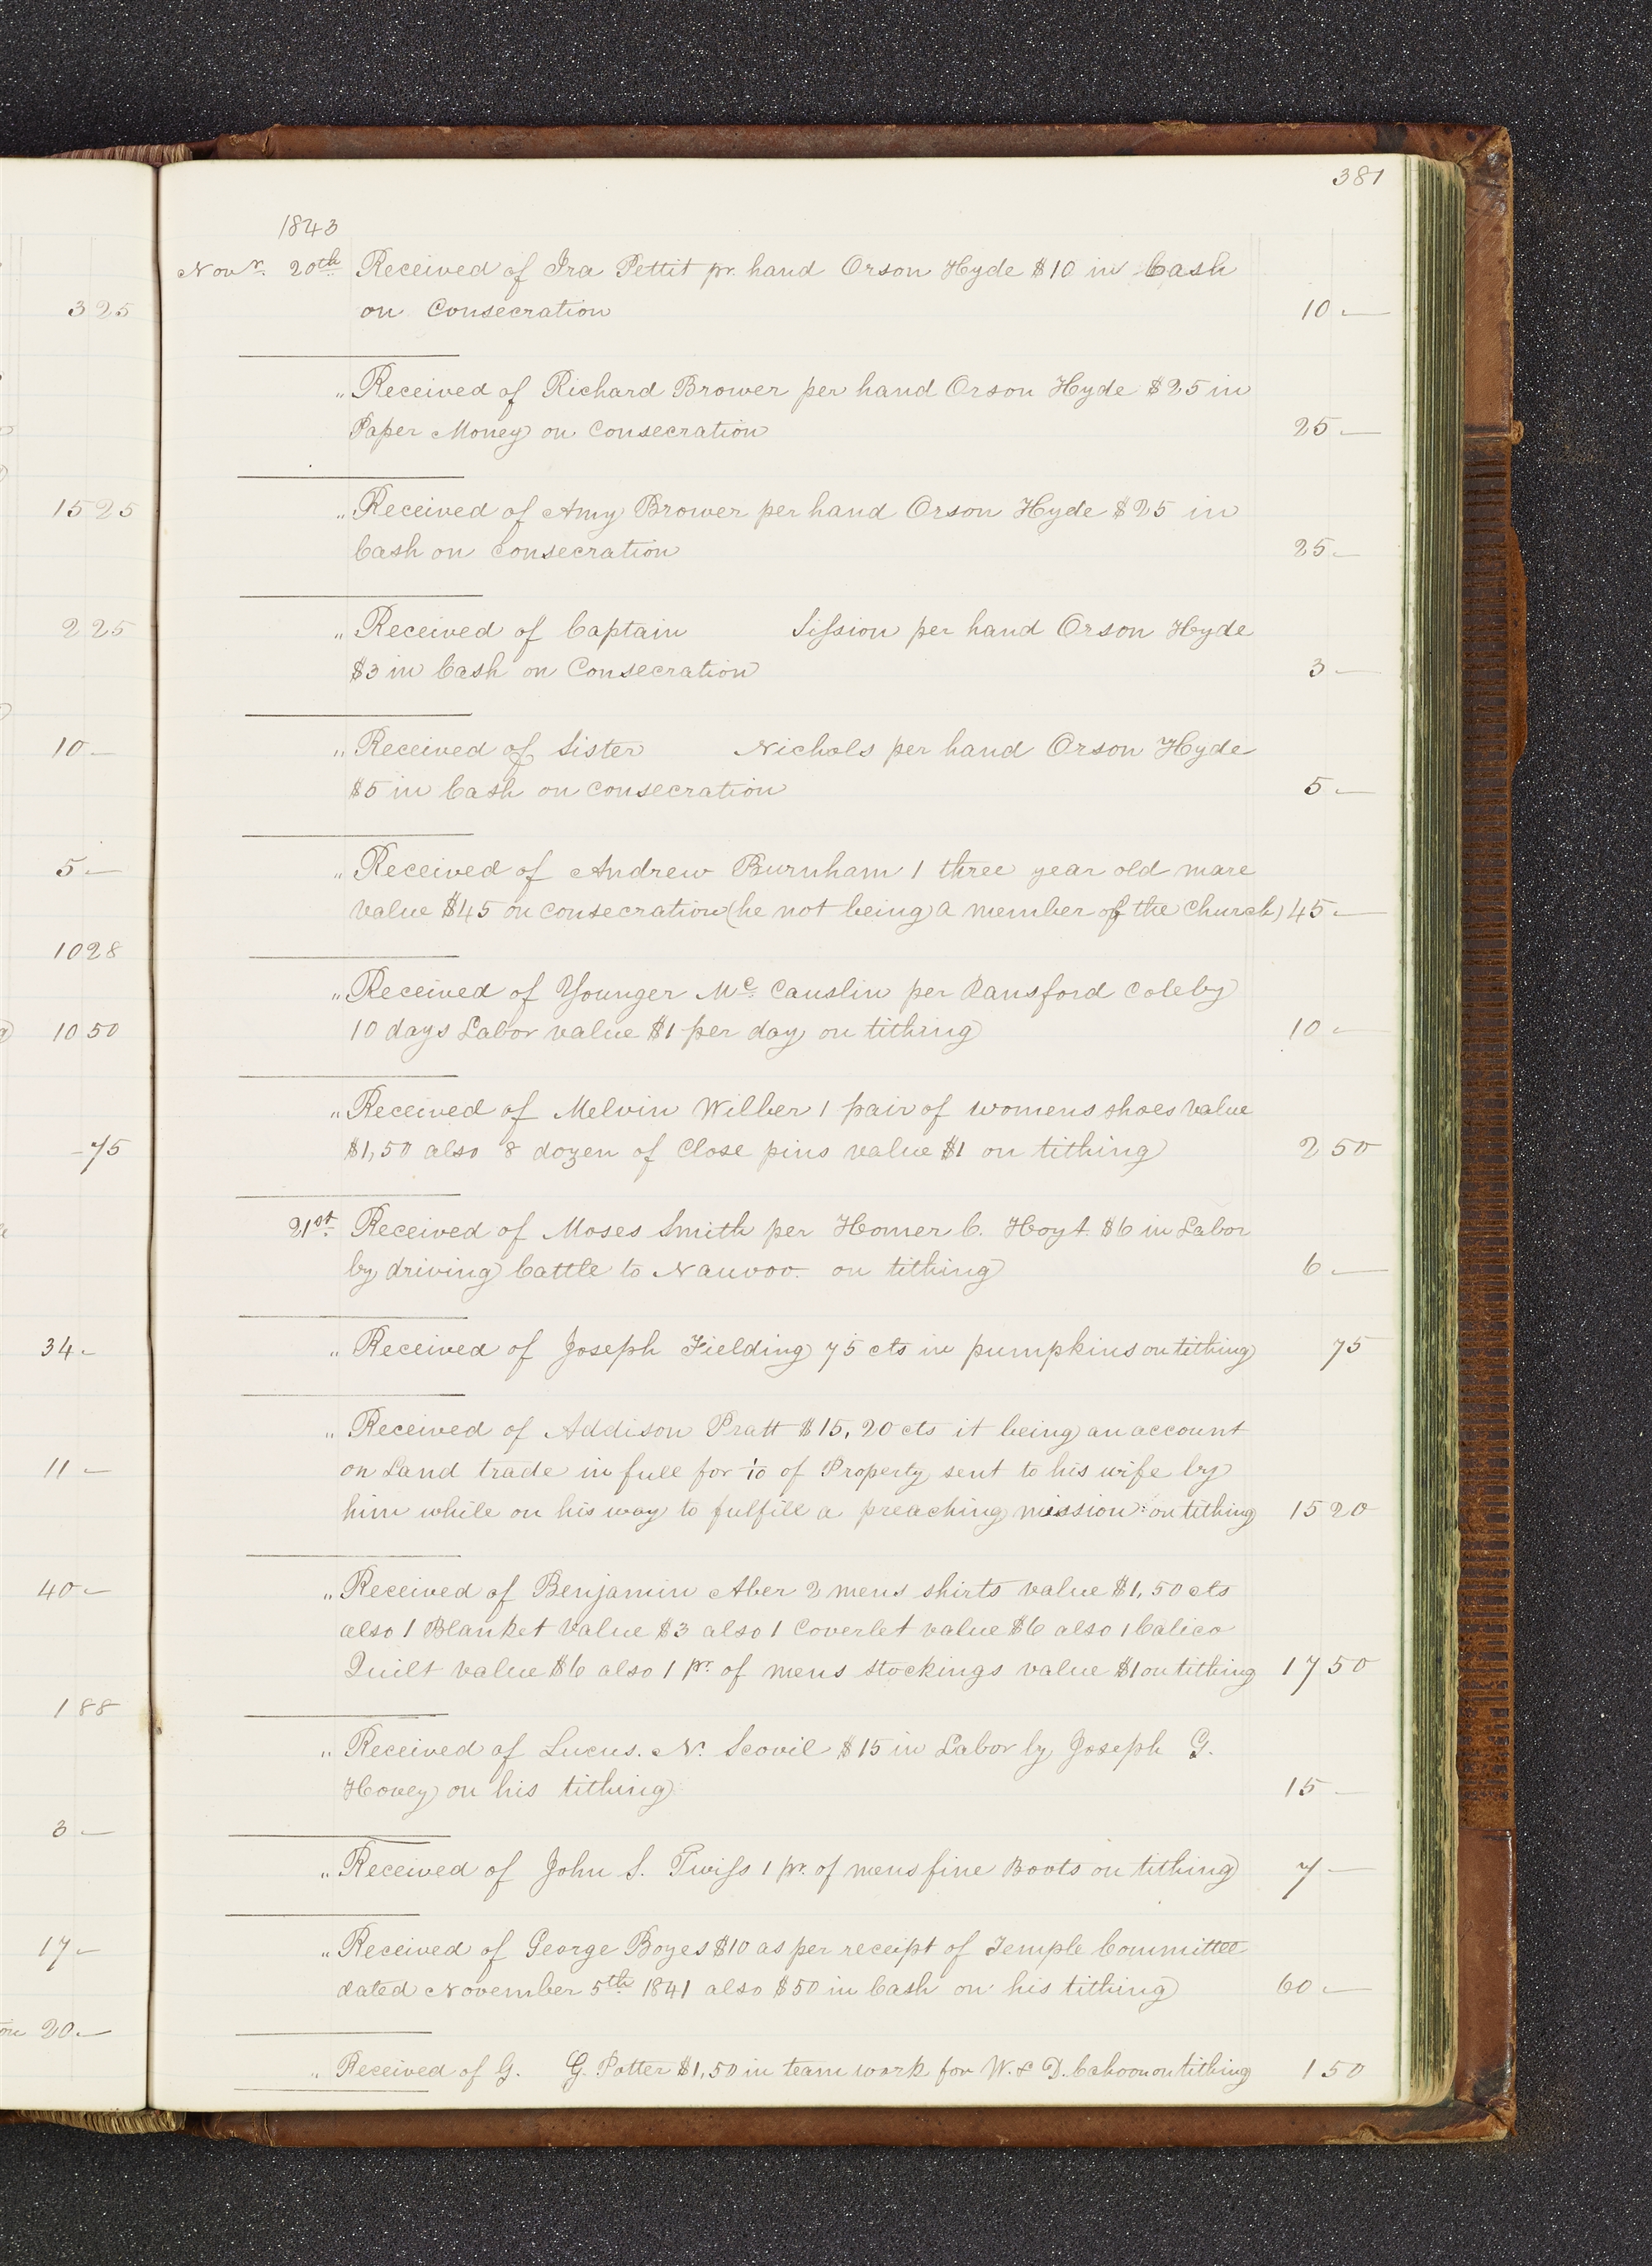 381
1843
Novr. 20th Received of Ira Pettit pr. hand Orson Hyde $10 in Cash
325
on Consecration 10 —
" Received of Richard Brower per hand Orson Hyde $25 in
Paper Money on Consecration 25 —
1525
" Received of Amy Brower per hand Orson Hyde $25 in
Cash on Consecration 25 —
225
" Received of Captain Sission per hand Orson Hyde
$3 in Cash on Consecration 3 —
10 —
" Received of Sister Nichols per hand Orson Hyde
$5 in Cash on consecration 5 —
5 —
" Received of Andrew Burnham 1 three year old mare
value $45 on consecration (he not being a member of the Church) 45 —
1028
" Received of Younger Mc. Causlin per Ransford Coleby
1050
10 days Labor value $1 per day on tithing 10 —
" Received of Melvin Wilber 1 pair of womens shoes value
—75
$1,50 also 8 dozen of Close pins value $1 on tithing 2 50
21st. Received of Moses Smith per Homer C. Hoyt. $6 in Labor
by driving Cattle to Nauvoo. on tithing 6 —
34 —
" Received of Joseph Fielding 75 cts in pumpkins on tithing 75
" Received of Addison Pratt $15, 20 cts it being an account
11 —
on Land trade in full for 1/10 of Property sent to his wife by
him while on his way to fulfill a preaching mission: on tithing 15 20
40 —
" Received of Benjamin Aber 2 mens shirts value $1, 50 cts
also 1 Blanket value $3 also 1 Coverlet value $6 also 1 Calico
Quilt value $6 also 1 pr. of mens stockings value $1 on tithing 17 50
188
" Received of Lucus. N. Scovil $15 in Labor by Joseph G.
Hovey on his tithing 15 —
3 —
" Received of John S. Twiss 1 pr. of mens fine Boots on tithing 7 —
17 —
" Received of George Boyes $10 as per receipt of Temple Committee
dated November 5th 1841 also $50 in Cash on his tithing 60 —
on 20 —
" Received of G. G. Potter $1,50 in team work for W. & D. Cahoon on tithing 1 50